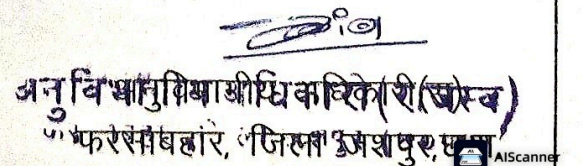 अनुविभागीय अधिकारी (राजस्व)
फरसाबहार, जिला जशपुर, छ.ग.
AIScanner